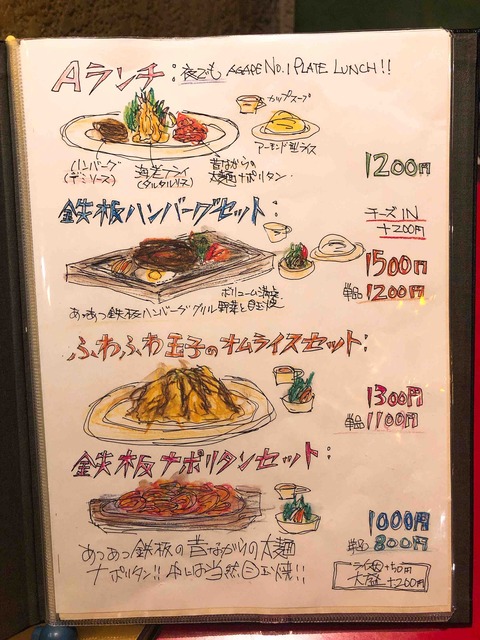 Aランチ: 夜でも AGAPE NO.1 PLATE LUNCH!!
カップスープ
アーモンド型ライス
ハンバーグ
(デミソース)
海老フライ
(タルタルソース)
昔ながらの
太麺ナポリタン
1200円
鉄板ハンバーグセット:
チーズIN
+200円
1500円
単品 1200円
ボリューム満点
あつあつ鉄板ハンバーグ グリル野菜と目玉焼
ふわふわ玉子のオムライスセット:
1300円
単品 1100円
鉄板ナポリタンセット:
1000円
単品 800円
あつあつ鉄板の昔ながらの太麺
ナポリタン!! 中には当然目玉焼!!
ライス大 +50円
大盛 +200円